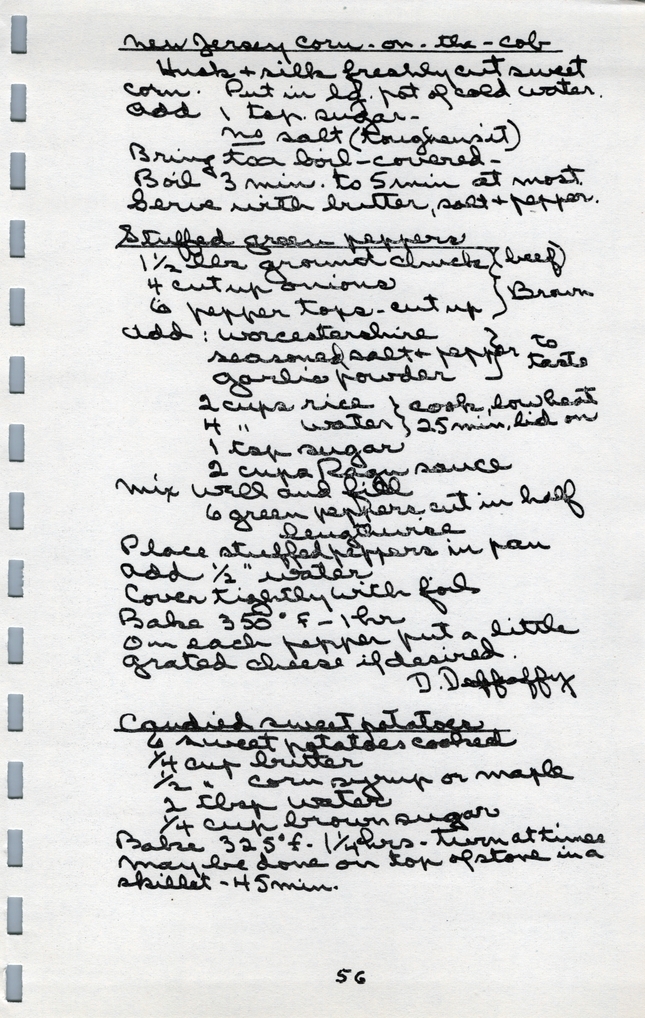 New Jersey corn-on-the-cob
Husk + silk freshly cut sweet
corn. Put in lg. pot of cold water.
Add 1 tsp. sugar-
no salt (toughens it)
Bring to a boil-covered-
Boil 3 min. to 5 min at most.
Serve with butter, salt + pepper.
Stuffed green peppers
1 1/2 lbs ground chuck (beef)
4 cut up onions } Brown
6 pepper tops-cut up
Add: Worcestershire
seasoned salt + pepper } to taste
garlic powder
2 cups rice } cook, low heat
4 " water } 25 min, lid on
1 tsp sugar
2 cups Ragu sauce
Mix well and fill
6 green peppers cut in half
lengthwise
Place stuffed peppers in pan
Add 1/2" water
Cover tightly with foil
Bake 350° F - 1 hr
On each pepper put a little
grated cheese if desired.
D. Deffaffy
Candied sweet potatoes
6 sweet potatoes cooked
1/4 cup butter
1/2 " corn syrup or maple
2 tbsp water
1/4 cup brown sugar
Bake 325° f - 1 1/4 hrs - turn at times
May be done on top of stove in a
skillet - 45 min.
56